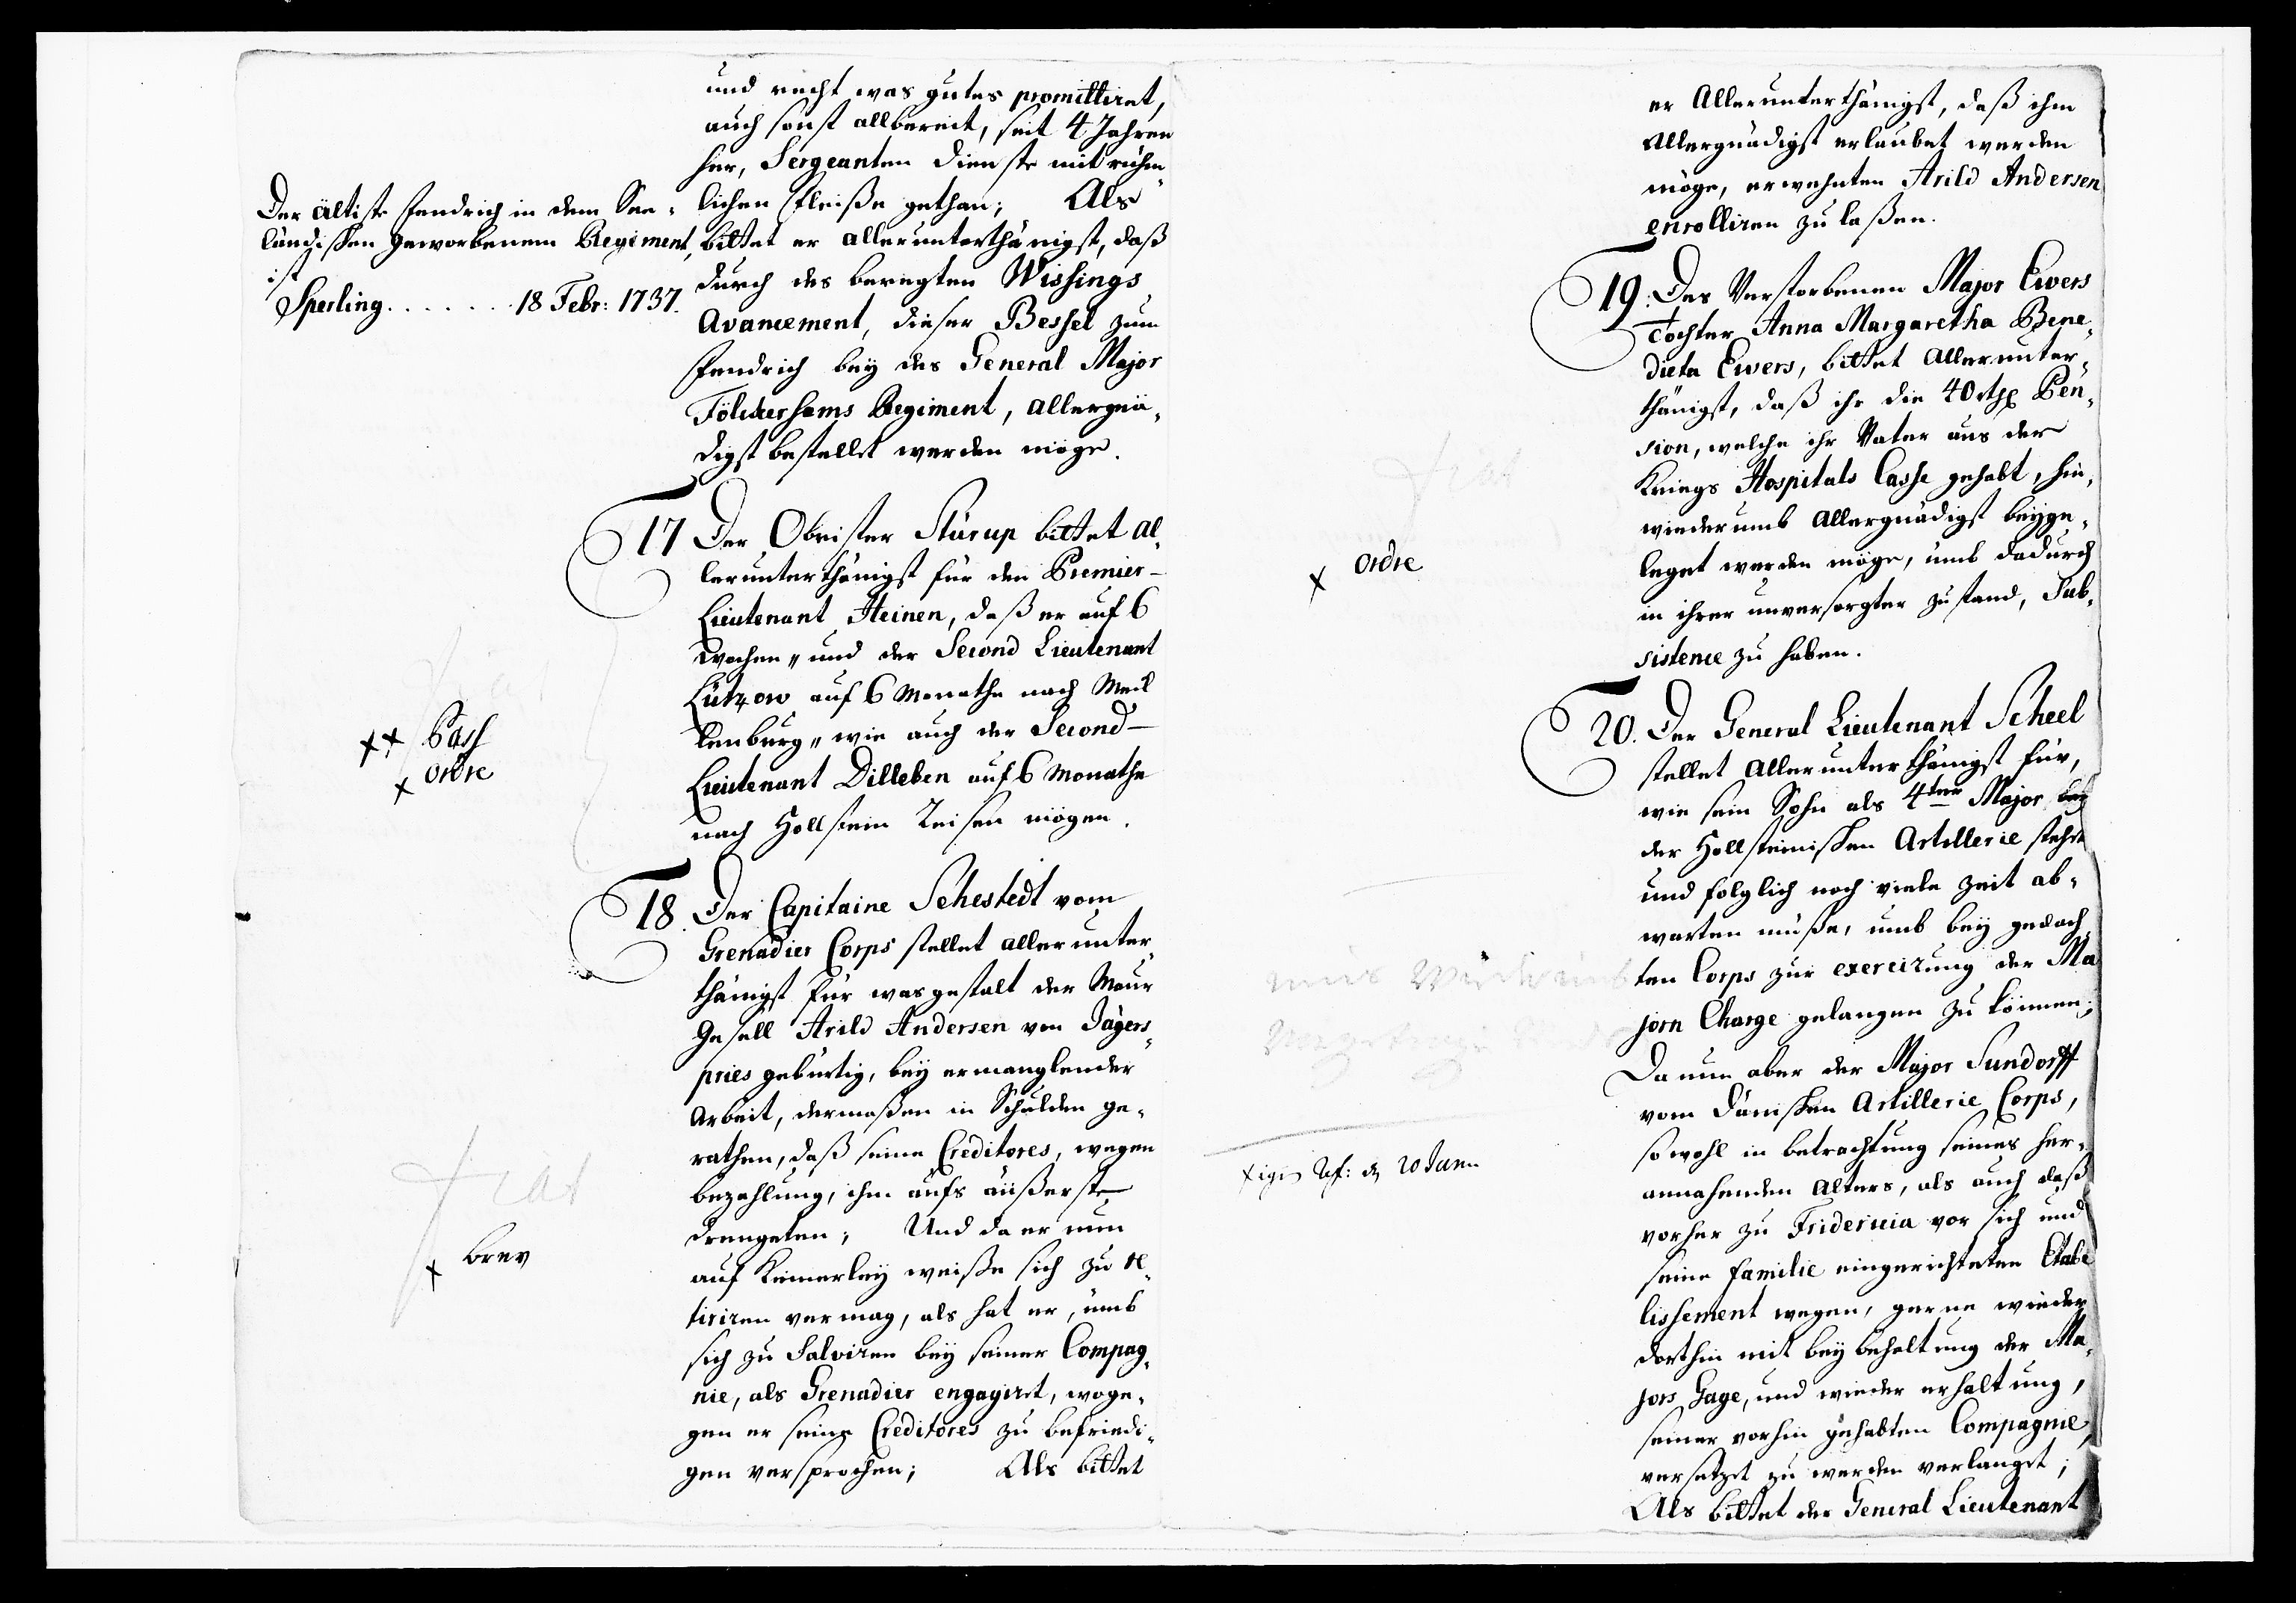 und recht was gutes promittiret,
auch sonst allbereit, seit 4 Jahren
her, Sergeanten Dienste mit rühm„
lichen Fleiße gethan; Als
bittet er allerunterthänigst, daß
durch des beregten Wissings
Avancement, dieser Bessel zum
Fendrich bey des General Major
Fölckersams Regiment, allergnä„
digst bestellet werden möge.
Der ältiste Fendrich in dem See„
ländischen geworbenem Regiment,
ist
Sperling . . . . . . 18 Febr: 1737.
17 Der Obrister Stürup bittet al„
lerunterthänigst für den Premier-
Lieutenant Heinen, daß er auf 6
Wochen„ und der Second Lieutenant
Lützow auf 6 Monathe nach Meck
lenburg„ wie auch der Second-
Lieutenant Dilleben auf 6 Monathe
nach Hollstein Reisen mögen.
fiat
xx Pass
x Ordre
18. Der Capitaine Sehestedt vom
Grenadier Corps stellet allerunter„
thänigst für wasgestalt der Maur
Gesell Arild Andersen von Jägers„
pries gebürtig, bey ermanglender
Arbeit, dermaßen in Schulden ge„
rathen, daß seine Creditores, wegen
bezahlung, ihm aufs äüßerste
drengeten; Und da er nun
auf keinerley weiße sich zu re„
tiriren vermag, als hat er, umb
sich zu Salviren bey seiner Compag„
nie, als Grenadier engagiret, woge„
gen er seine Creditores zu befriedi„
gen versprochen; Als bittet
fiat
x brev
er Allerunterthänigst, daß ihm
Allergnädigst erlaubet werden
möge, erwehnten Arild Andersen
enrolliren zu laßen.
19. Des Verstorbenen Major Ewers
Tochter Anna Margaretha Bene„
dicta Ewers, bittet Allerunter„
thänigst, daß ihr die 40 rthl Pen„
sion, welche ihr Vater aus der
Kriegs Hospitals Casse gehabt, hin„
wiederumb Allergnädigst beyge„
leget werden möge, umb dadurch
in ihrer unversorgter zustand, Sub„
sistence zu haben.
fiat
x Ordre
20. Der General Lieutenant Scheel
stellet Allerunterthänigst für,
wie sein Sohn als 4ter Major bey
der Hollsteinischen Artillerie stehe
und folglich noch viele Zeit ab„
warten müße, umb bey gedach„
ten Corps zur exercirung der Ma
jorn Charge gelangen zu können;
Da nun aber der Major Sundorff
vom Dänischen Artillerie Corps,
so wohl in betrachtung seines her„
annahenden Alters, als auch daß
vorher zu Fridericia vor sich und
seine Familie eingerichteten Etabe
lissement wegen, gerne wieder
dorthin mit beybehaltung der Ma„
jors Gage, und wieder erhaltung,
seiner vorhin gehabten Compagnie,
versetzet zu werden verlanget;
Als bittet der General Lieutenant
20 Janu